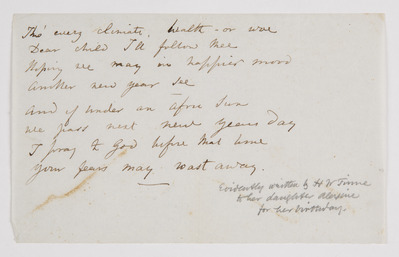 Tho' every climate, wealth - or woe
Dear child I'll follow thee
Hoping we may in happier mood
Another new year see
And if under an Afric Sun
we pass next new years day
I pray to God before that time
your fears may wast away.
Evidently written by H W Tinne
to her daughter Alexine
for her birthday.